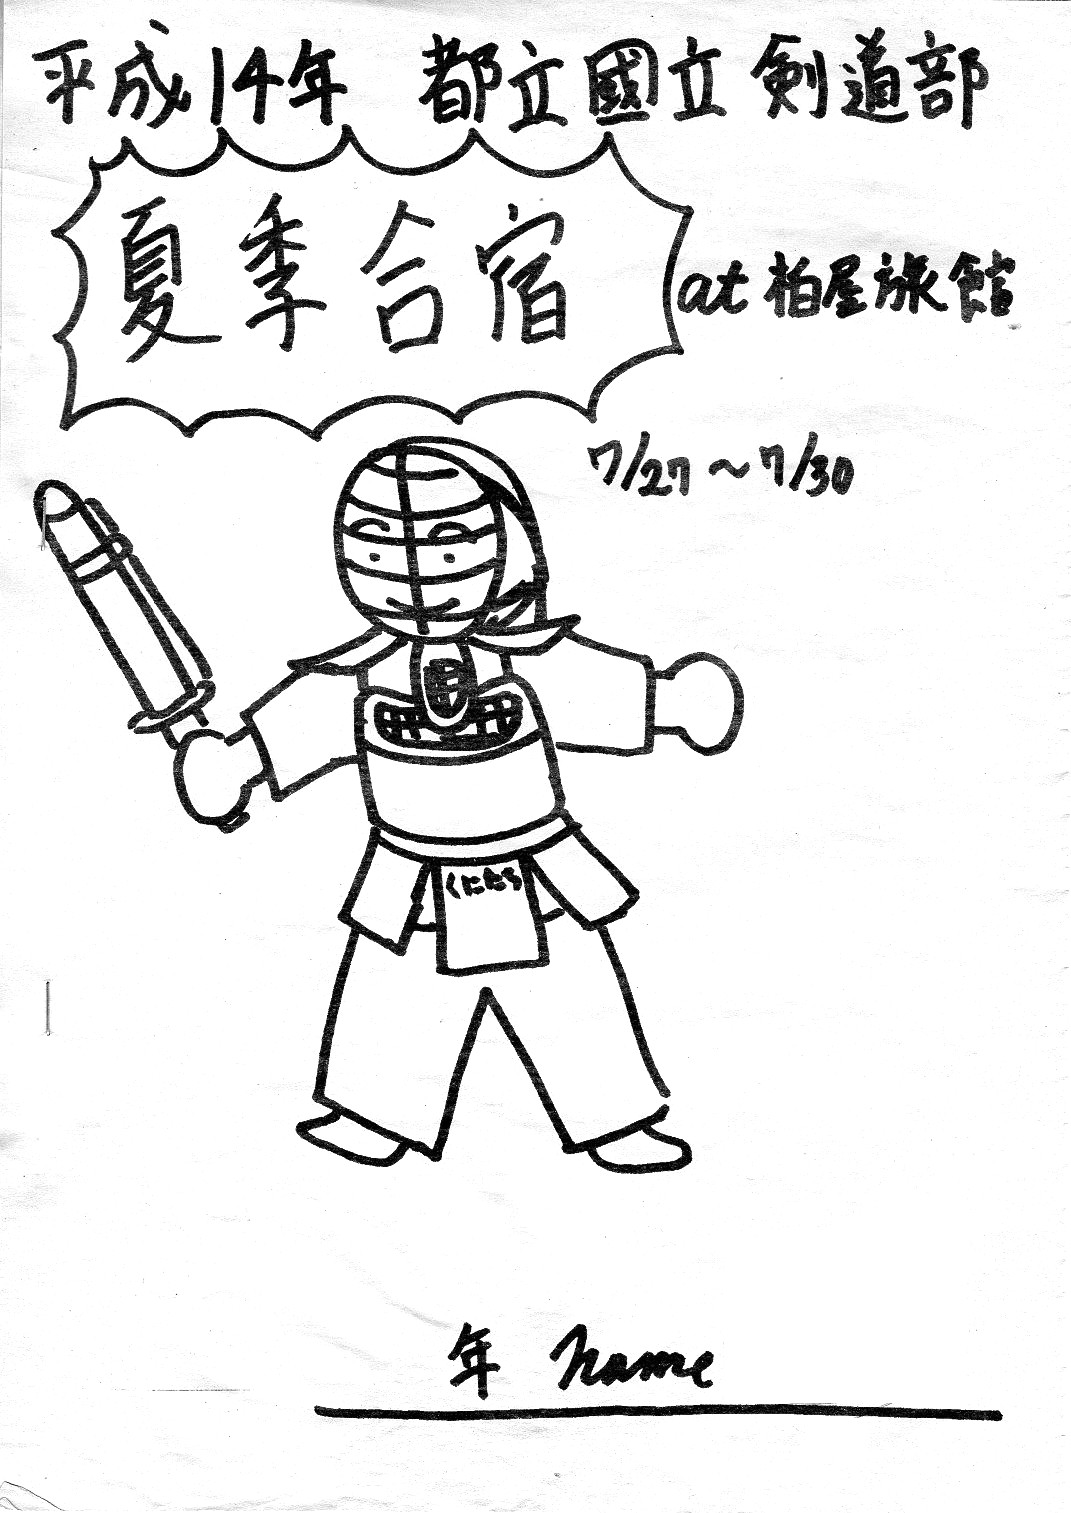 平成14年 都立國立剣道部
夏季合宿
at 柏屋旅館
7/27〜7/30
くにたち
年 name